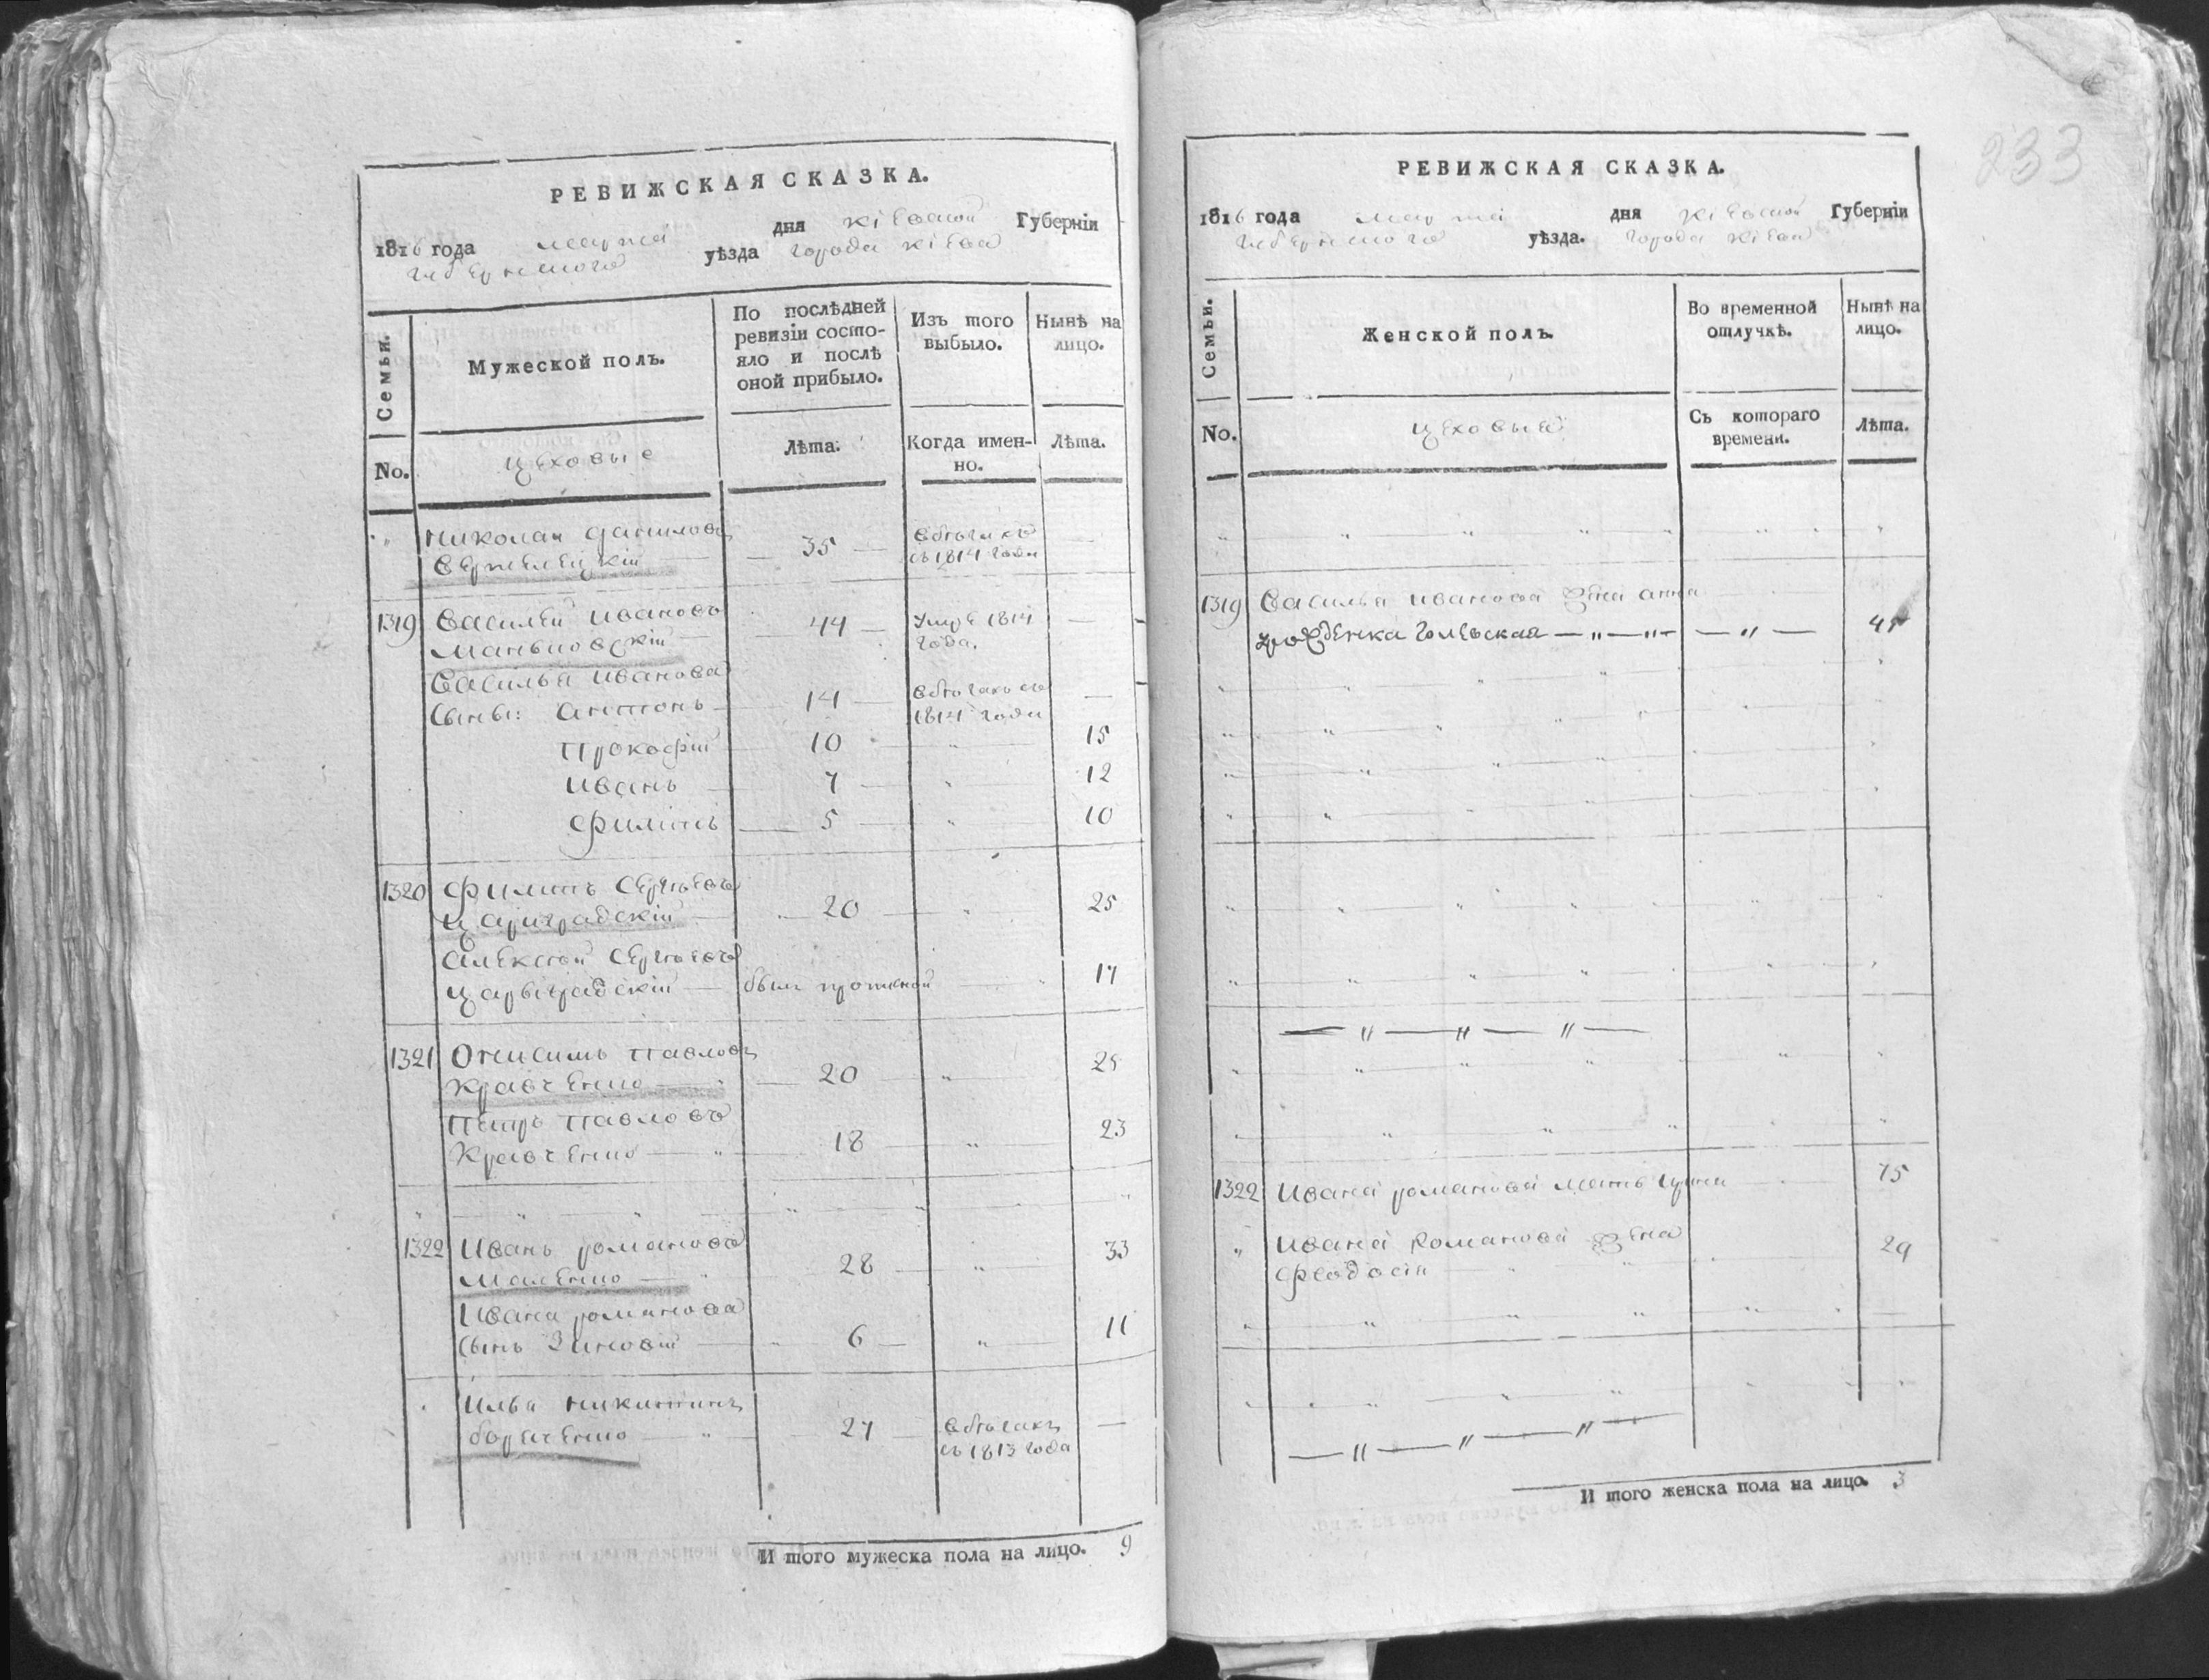 РЕВИЖСКАЯ СКАЗКА.
1816 года марта дня Кіевской Губерніи
Губернского уѣзда города Кіева
Семьи.
Мужеской полъ.
По послѣдней ревизіи состо-
яло и послѣ
оной прибыло.
Изъ того
выбыло.
Нынѣ на
лицо.
No.
цеховые
Лѣта.
Когда имен-
но.
Лѣта.
Николай Данилов
35
в бѣгахъ
съ 1814 года
1319 Василей Ивановъ
44
Умре 1814
года.
Маньковскій
Василья Иванова
сыны: Антонъ 14
в бѣгахъ съ
1814 года
Прокофій 10 15
Иванъ 7 12
Филипъ 5 10
1320 Филипъ Сергѣевъ
Цариградскій 20 25
Алексѣй Сергѣевъ
Царыградскій 17
1321 Онисимъ Павловъ
Кравченко 20 25
Петръ Павловъ
Кравченко 18 23
1322 Иванъ Романовъ
28 33
Ивана Романова
сынъ Зиновій 6 11
Илья Никитинъ
27
в бѣгахъ
съ 1813 года
И того мужеска пола на лицо. 9
233
РЕВИЖСКАЯ СКАЗКА.
1816 года марта дня Кіевской Губерніи
Губернского уѣзда. города Кіева
Семьи.
Женской полъ.
Во временной
отлучкѣ.
Нынѣ на
лицо.
No.
цеховые
Съ котораго
времени.
Лѣта.
1319 Василья Иванова жена Анна
1322 Ивана Романова мать 75
Ивана Романова жена
Феодосія 29
И того женска пола на лицо. 3